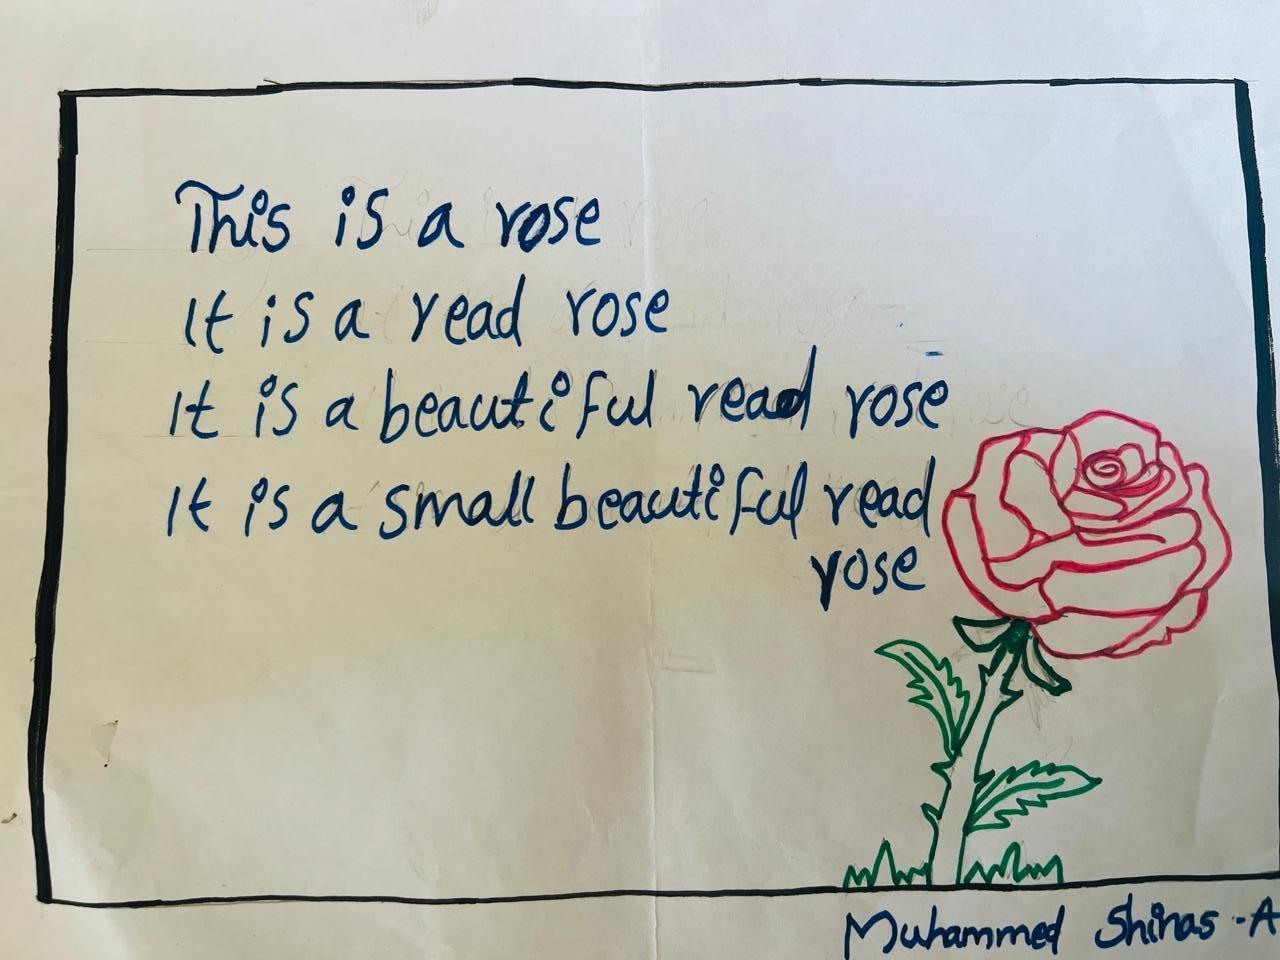 This is a rose
It is a read rose
It is a beautiful read rose
It is a small beautiful read
rose
Muhammed Shinas - A